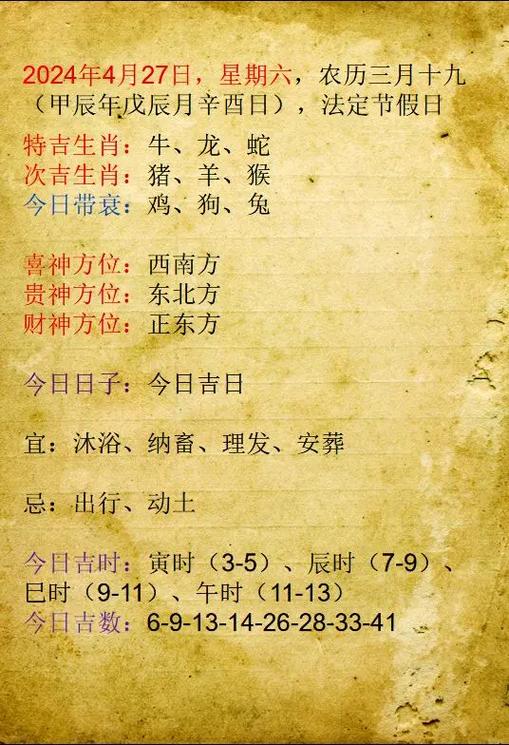 2024年4月27日，星期六，农历三月十九
（甲辰年戊辰月辛酉日），法定节假日
特吉生肖：牛、龙、蛇
次吉生肖：猪、羊、猴
今日带衰：鸡、狗、兔
喜神方位：西南方
贵神方位：东北方
财神方位：正东方
今日日子：今日吉日
宜：沐浴、纳畜、理发、安葬
忌：出行、动土
今日吉时：寅时（3-5）、辰时（7-9）、
巳时（9-11）、午时（11-13）
今日吉数：6-9-13-14-26-28-33-41